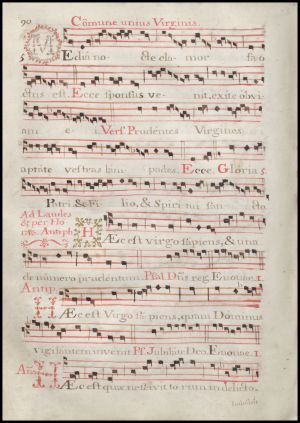 90 Cõmune unius Virginis.
Media nocte clamor factus
est. Ecce sponsus venit, exite obvi
am ei. Vers. Prudentes Virgines
aptate vestras lampades. Ecce. Gloria
Patri, & Filio, & Spiritui san
Ad Laudes
& per Ho
Antiph.
Hæc est virgo sapiens, & una
de numero prudentum. Dñs reg. Evovae. 1.
Antip.
Hæc est Virgo sapiens, quam Dominus
vigilantem invenit. Ps. Jubilate Deo. Evovae. 1.
Hæc est quæ nescivit torum in delicto.